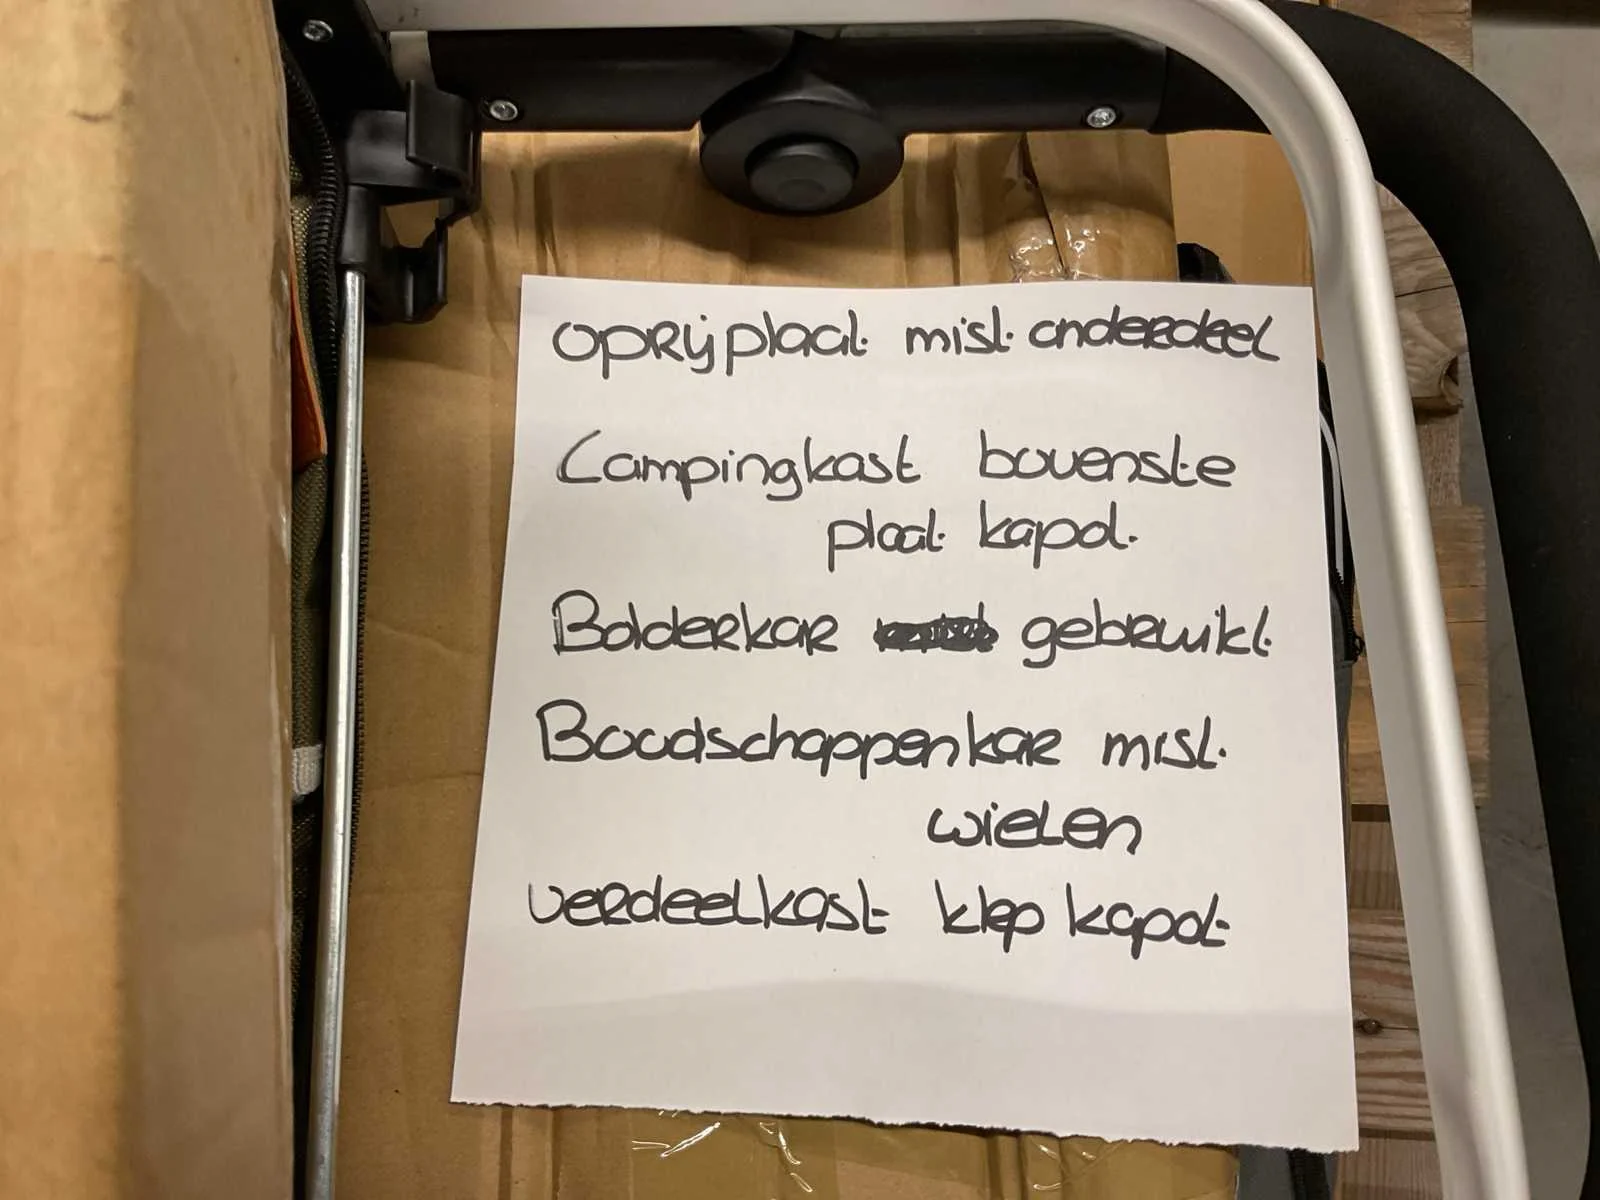 oprijplaat mist onderdeel
Campingkast bovenste
plaat kapot.
Bolderkar gebruikt
Boodschappenkar mist
wielen
verdeelkast klep kapot